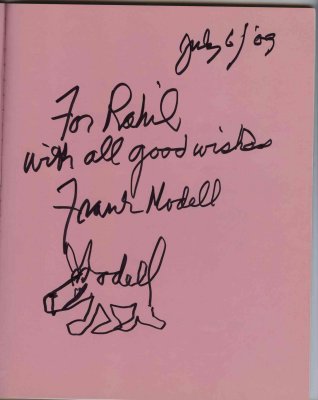 July 6/'09
For Rahil
with all good wishes
Frank Modell
Modell